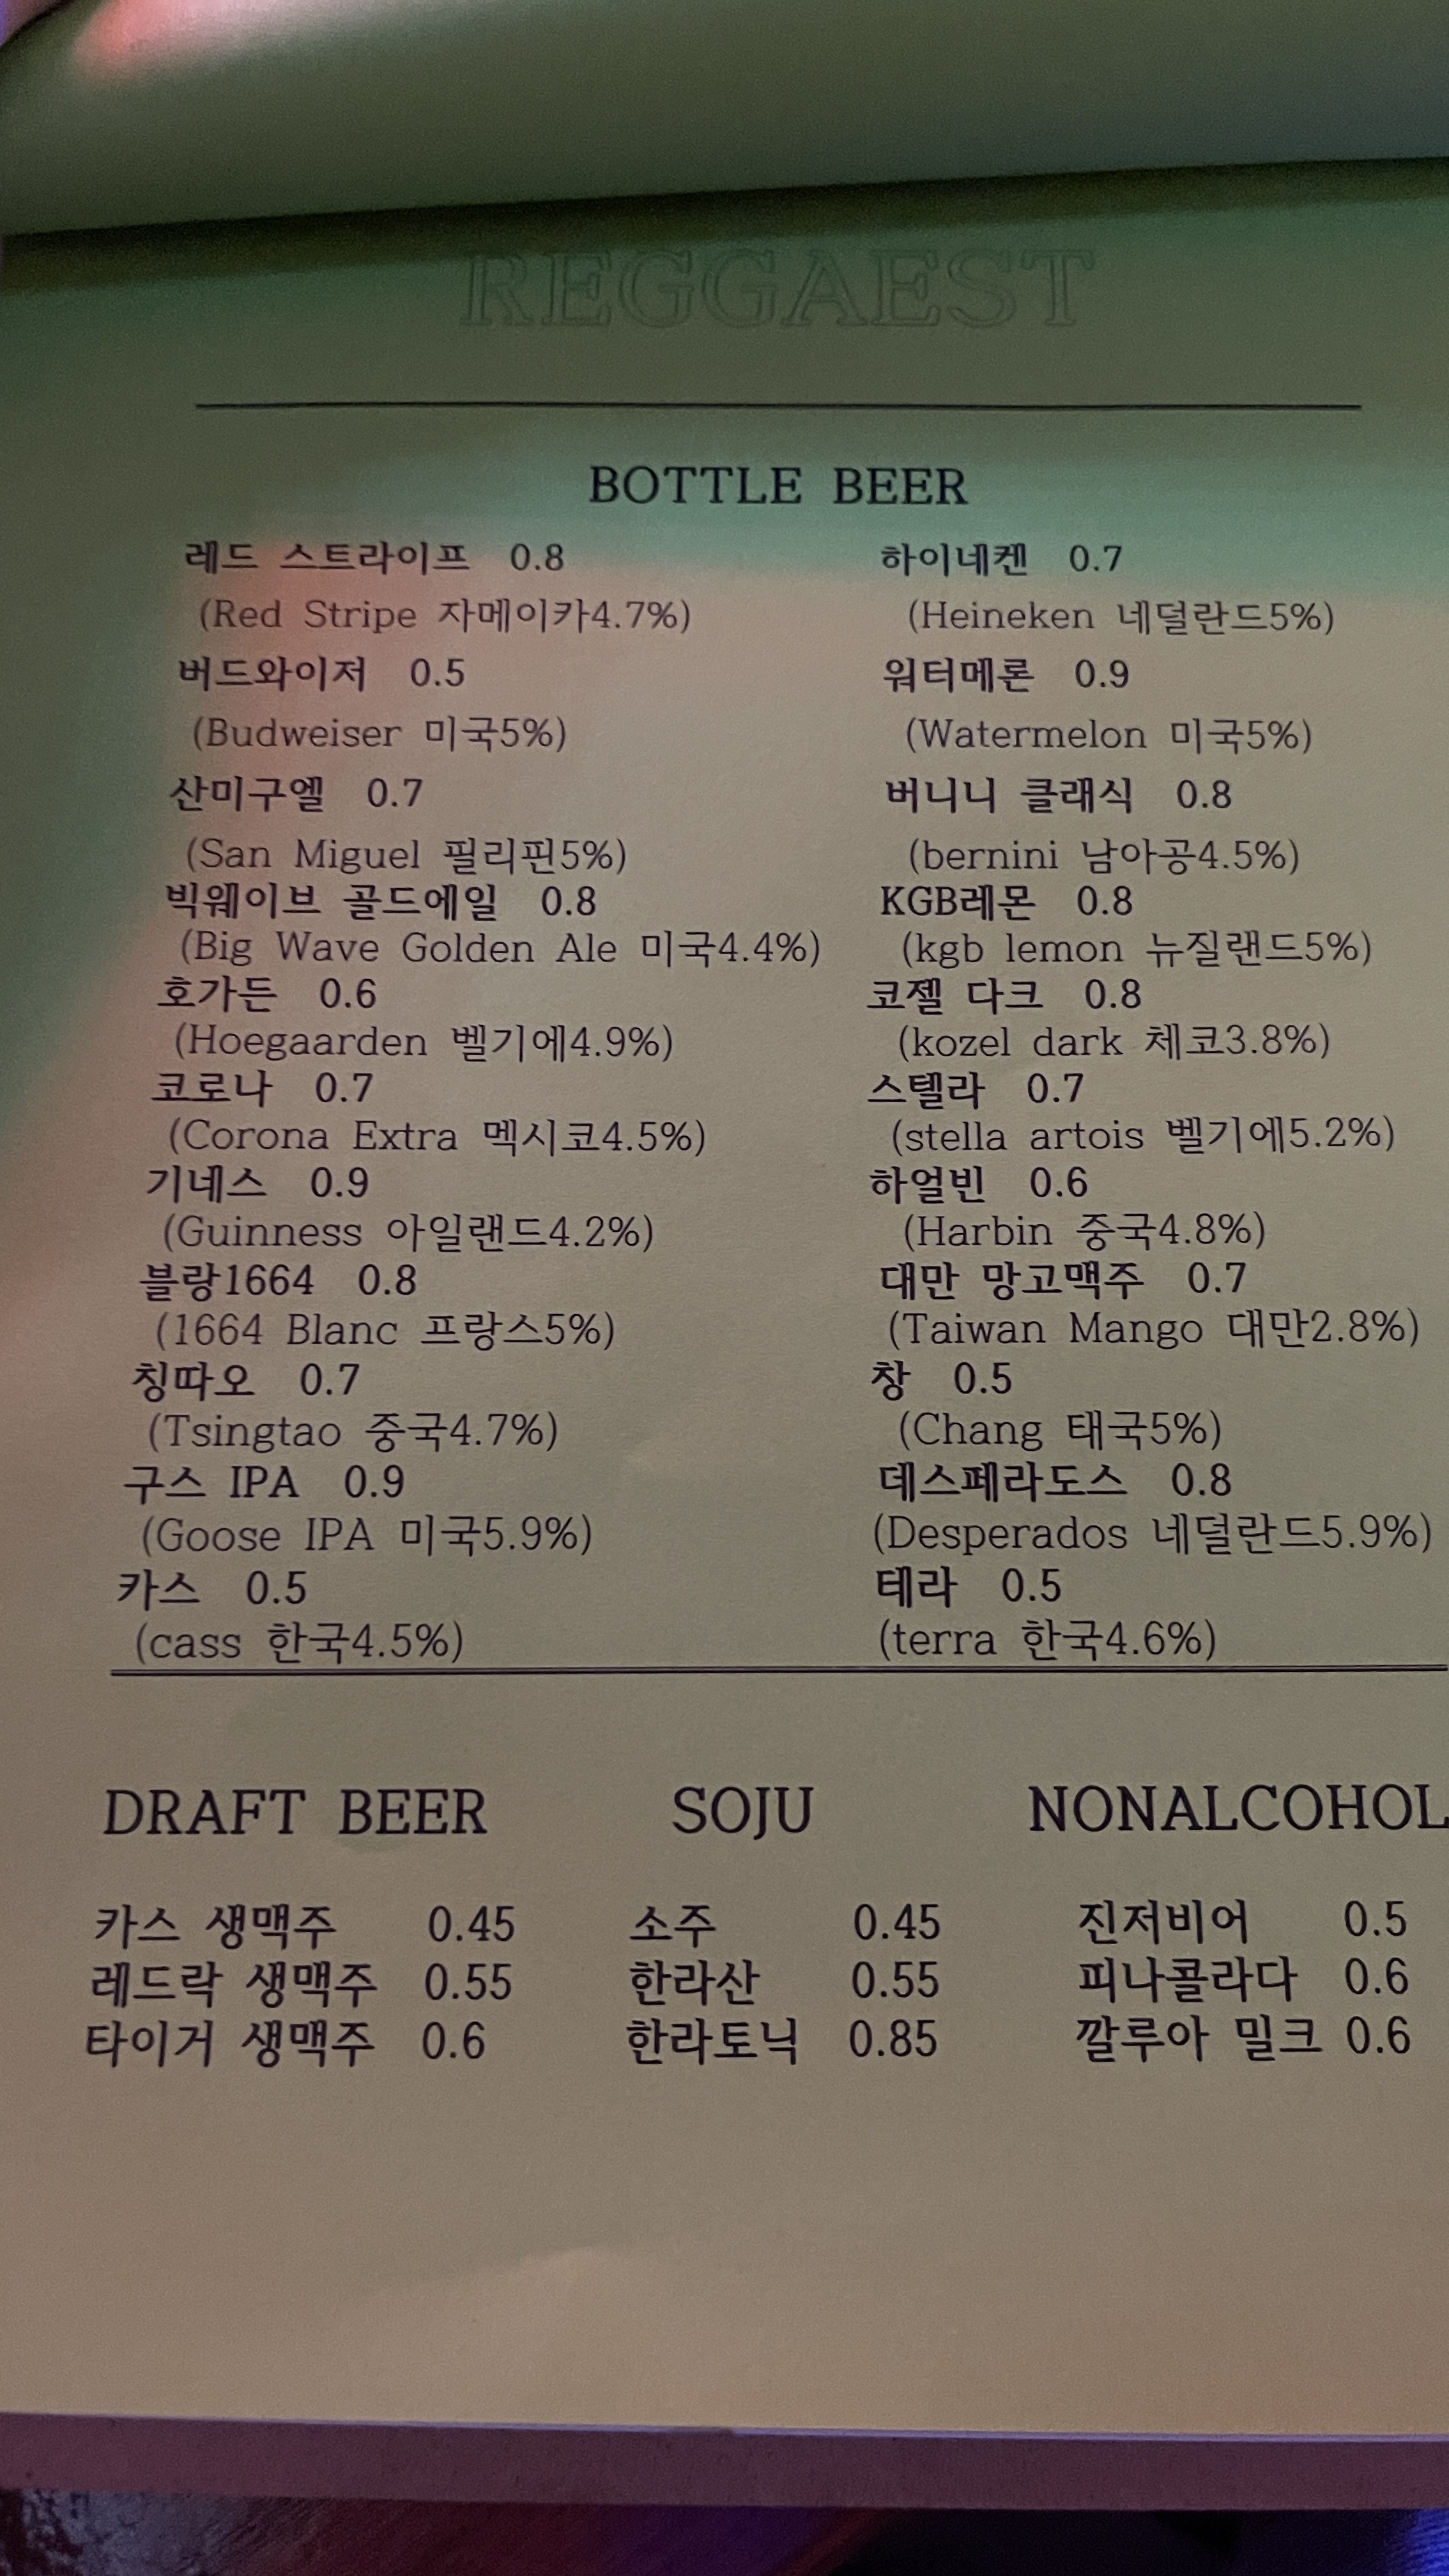 REGGAEST
BOTTLE BEER
레드 스트라이프 0.8
(Red Stripe 자메이카4.7%)
버드와이저 0.5
(Budweiser 미국5%)
산미구엘 0.7
(San Miguel 필리핀5%)
빅웨이브 골드에일 0.8
(Big Wave Golden Ale 미국4.4%)
호가든 0.6
(Hoegaarden 벨기에4.9%)
코로나 0.7
(Corona Extra 멕시코4.5%)
기네스 0.9
(Guinness 아일랜드4.2%)
블랑1664 0.8
(1664 Blanc 프랑스5%)
칭따오 0.7
(Tsingtao 중국4.7%)
구스 IPA 0.9
(Goose IPA 미국5.9%)
카스 0.5
(cass 한국4.5%)
하이네켄 0.7
(Heineken 네덜란드5%)
워터메론 0.9
(Watermelon 미국5%)
버니니 클래식 0.8
(bernini 남아공4.5%)
KGB레몬 0.8
(kgb lemon 뉴질랜드5%)
코젤 다크 0.8
(kozel dark 체코3.8%)
스텔라 0.7
(stella artois 벨기에5.2%)
하얼빈 0.6
(Harbin 중국4.8%)
대만 망고맥주 0.7
(Taiwan Mango 대만2.8%)
창 0.5
(Chang 태국5%)
데스페라도스 0.8
(Desperados 네덜란드5.9%)
테라 0.5
(terra 한국4.6%)
DRAFT BEER
카스 생맥주 0.45
레드락 생맥주 0.55
타이거 생맥주 0.6
SOJU
소주 0.45
한라산 0.55
한라토닉 0.85
NONALCOHOL
진저비어 0.5
피나콜라다 0.6
깔루아 밀크 0.6